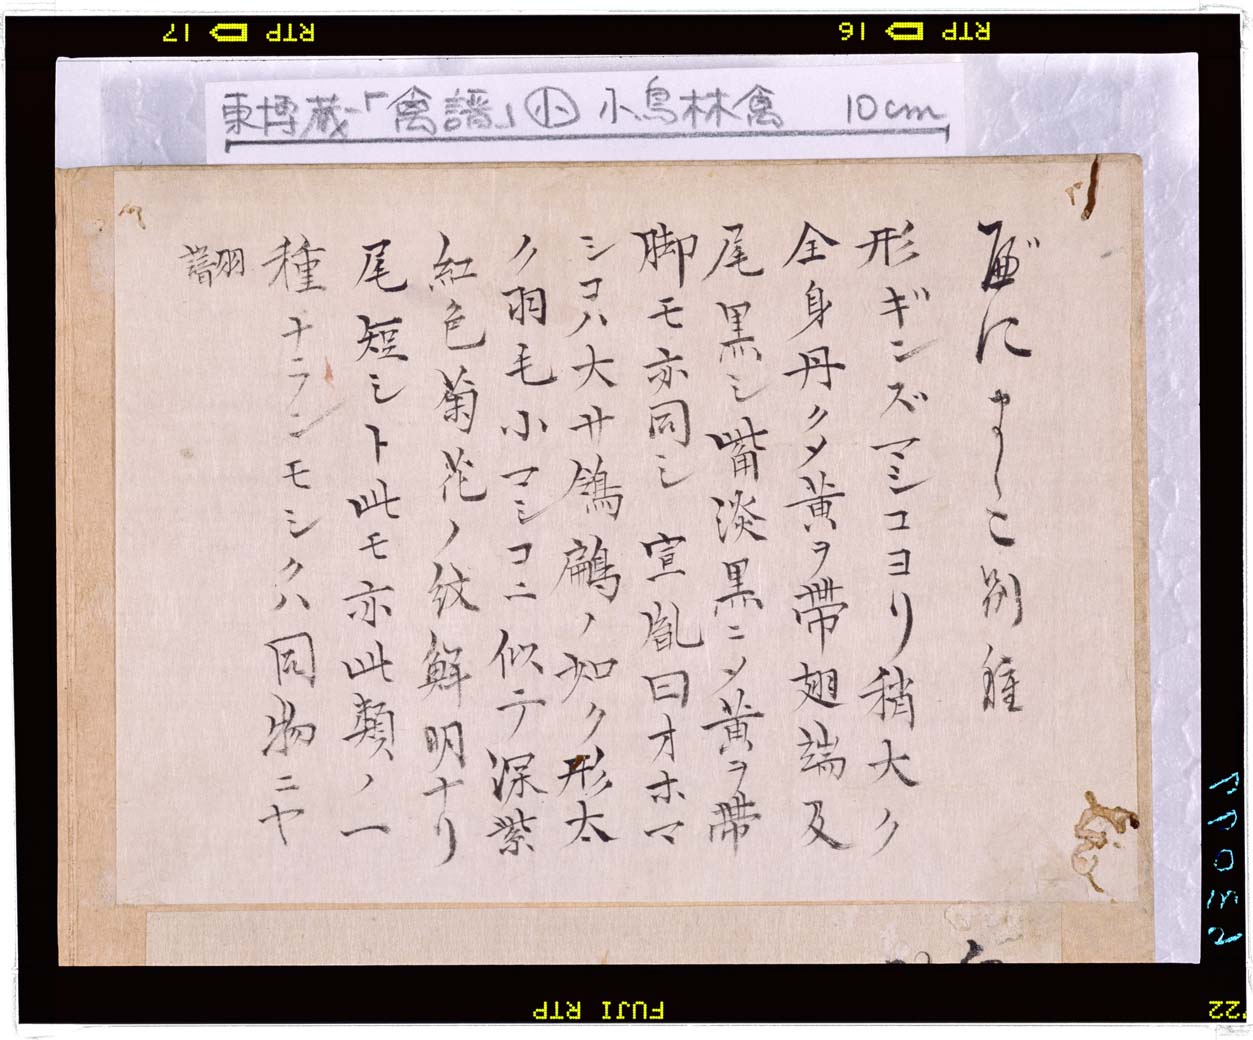 17 RTP
16 RTP
東博蔵-「禽譜」小 小鳥林禽 10cm
べにましこ別種
形ギンズマシコヨリ稍大ク
全身丹クメ黄ヲ帶翅端及
尾黒シ嘴淡黒ニメ黄ヲ帶
脚モ亦同シ 宣胤曰オホマ
シコハ大サ鴿鷉ノ如ク形太
ノ羽毛小マシコニ似テ深紫
紅色菊花ノ紋鮮明ナリ
尾短シト此モ亦此類ノ一
種ナランモシクハ同物ニヤ
翻
FUJI RTP
'22